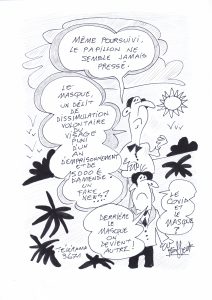 MÊME POURSUIVI,
LE PAPILLON NE
SEMBLE JAMAIS
PRESSÉ.
LE
MASQUE,
UN DÉLIT
DE
DISSIMULATION
VOLONTAIRE
DU
VISAGE
PUNI
D'UN
AN
D'EMPRISONNEMENT
ET DE
15000 €
D'AMENDE
UN
FAKE
NEWS?...
LE
COVID
ET
LE
MASQUE
?
DERRIÈRE
LE
MASQUE
ON
DEVIENT
AUTRE!
TÉLÉTHON
3637